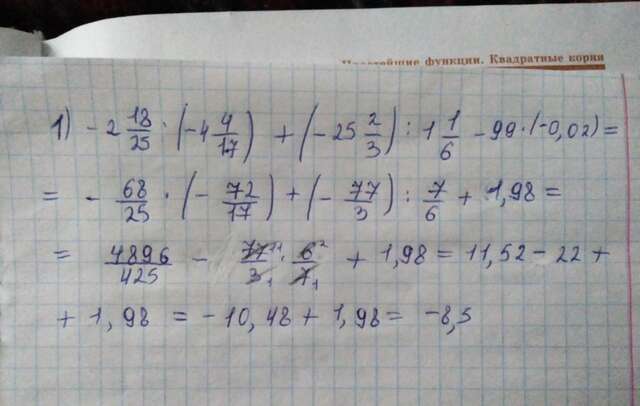 Простейшие функции. Квадратные корни
1) - 2 18/25 · (-4 4/17) + (-25 2/3) : 1 1/6 - 99 · (-0,02) =
= - 68/25 · (- 72/17) + (- 77/3) : 7/6 + 1,98 =
= 4896/425 - 77 11/3 1 · 6 2/7 1 + 1,98 = 11,52 - 22 +
+ 1,98 = -10,48 + 1,98 = -8,5